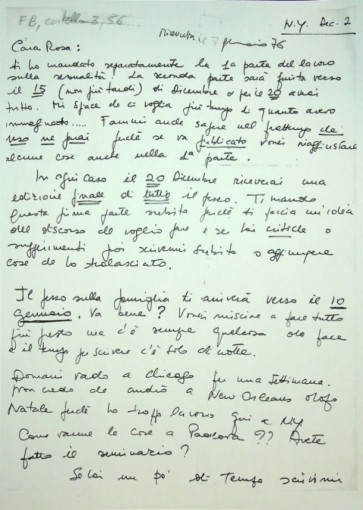 FB, cartella 3, 56
N.Y. Dec. 2
ricevuta il 7 gennaio 76
Cara Rosa:
ti ho mandato separatamente la 1a parte del lavoro
sulla sessualità! La seconda parte sarà finita verso
il 15 (non più tardi) di dicembre e per il 20 avrai
tutto. Mi spiace che ci voglia più tempo di quanto avevo
immaginato.... Fammi anche sapere nel frattempo che
uso ne farai perché se va pubblicato vorrei riaggiustare
alcune cose anche nella 1a parte.
In ogni caso il 20 Dicembre riceverai una
edizione finale di tutto il pezzo. Ti mando
questa prima parte subito perché ti faccia un'idea
del discorso che voglio fare e se hai critiche o
suggerimenti puoi scrivermi subito o aggiungere
cose che ho tralasciato.
Il pezzo sulla famiglia ti arriverà verso il 10
Gennaio. Va bene? Vorrei riuscire a fare tutto
più presto ma c'è sempre qualcosa da fare
e il tempo per scrivere c'è solo di notte.
Domani vado a Chicago per una settimana.
Non credo che andrò a New Orleans dopo
Natale perché ho troppo lavoro qui a NY
Come vanno le cose a Padova?? Avete
fatto il seminario?
Se hai un po' di tempo scrivimi